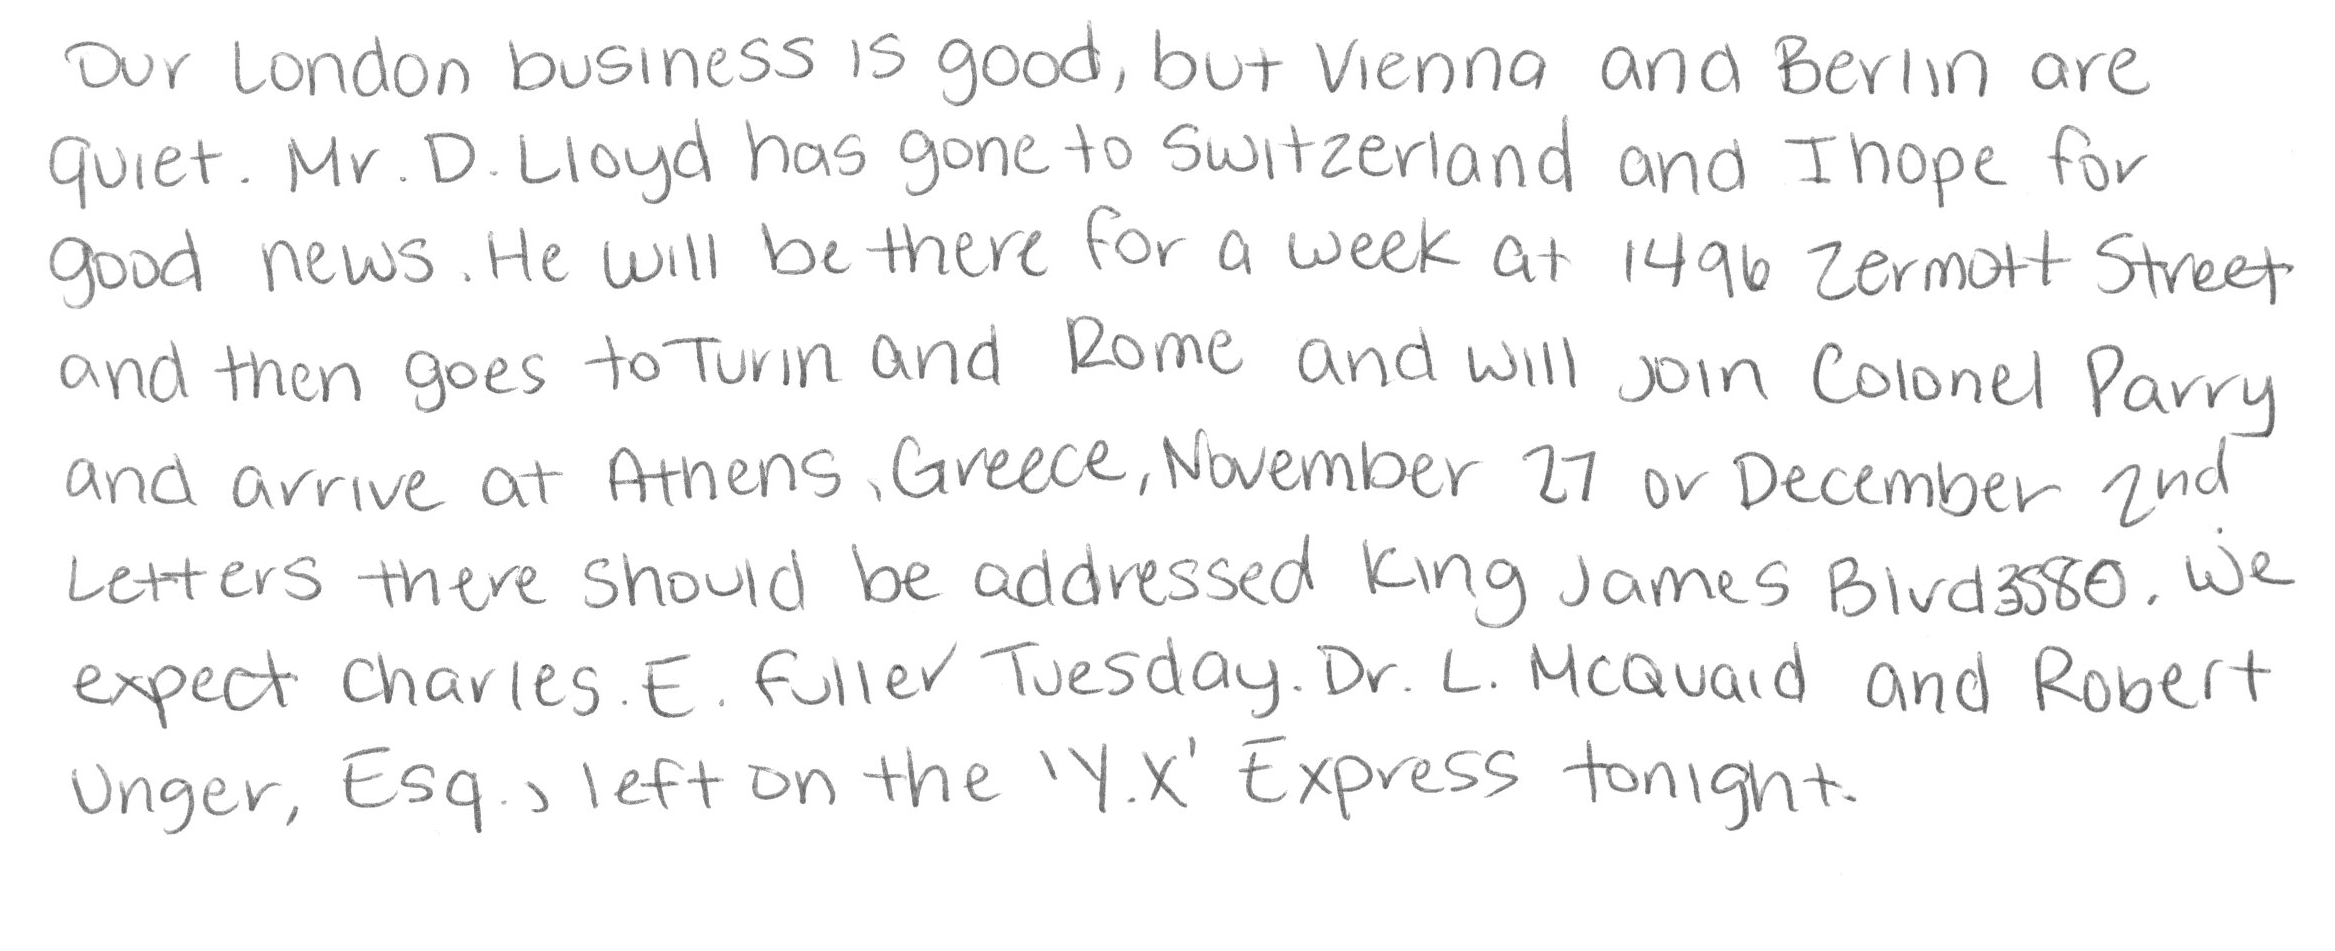 Our London business is good, but Vienna and Berlin are
quiet. Mr. D. Lloyd has gone to Switzerland and I hope for
good news. He will be there for a week at 1496 Zermott Street
and then goes to Turin and Rome and will join Colonel Parry
and arrive at Athens, Greece, November 27 or December 2nd
Letters there should be addressed King James Blvd 3580. We
expect Charles. E. Fuller Tuesday. Dr. L. McQuaid and Robert
Unger, Esq., left on the 'Y.X' Express tonight.